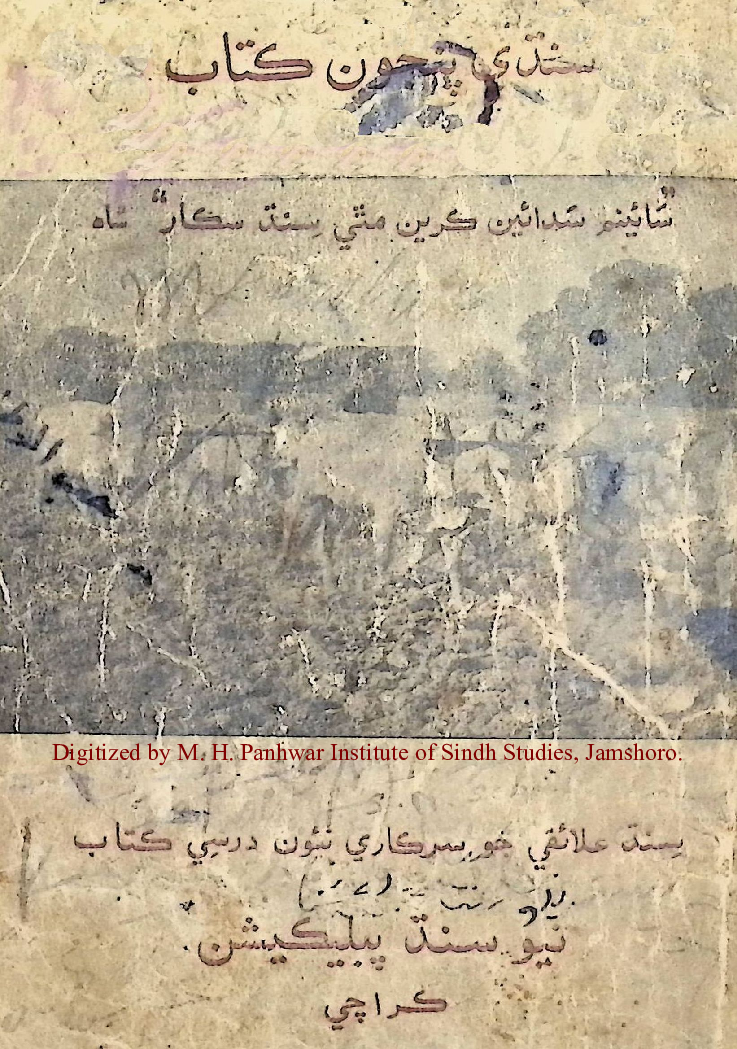 سنڌي پنجون ڪتاب
”سَائينم سَدائين ڪرين مٿي سِنڌ سڪار“ شاه
Digitized by M. H. Panhwar Institute of Sindh Studies, Jamshoro.
سِنڌ علائقي جو سرڪاري نئون درسي ڪتاب
نيو سنڌ پبليڪيشن
ڪراچي